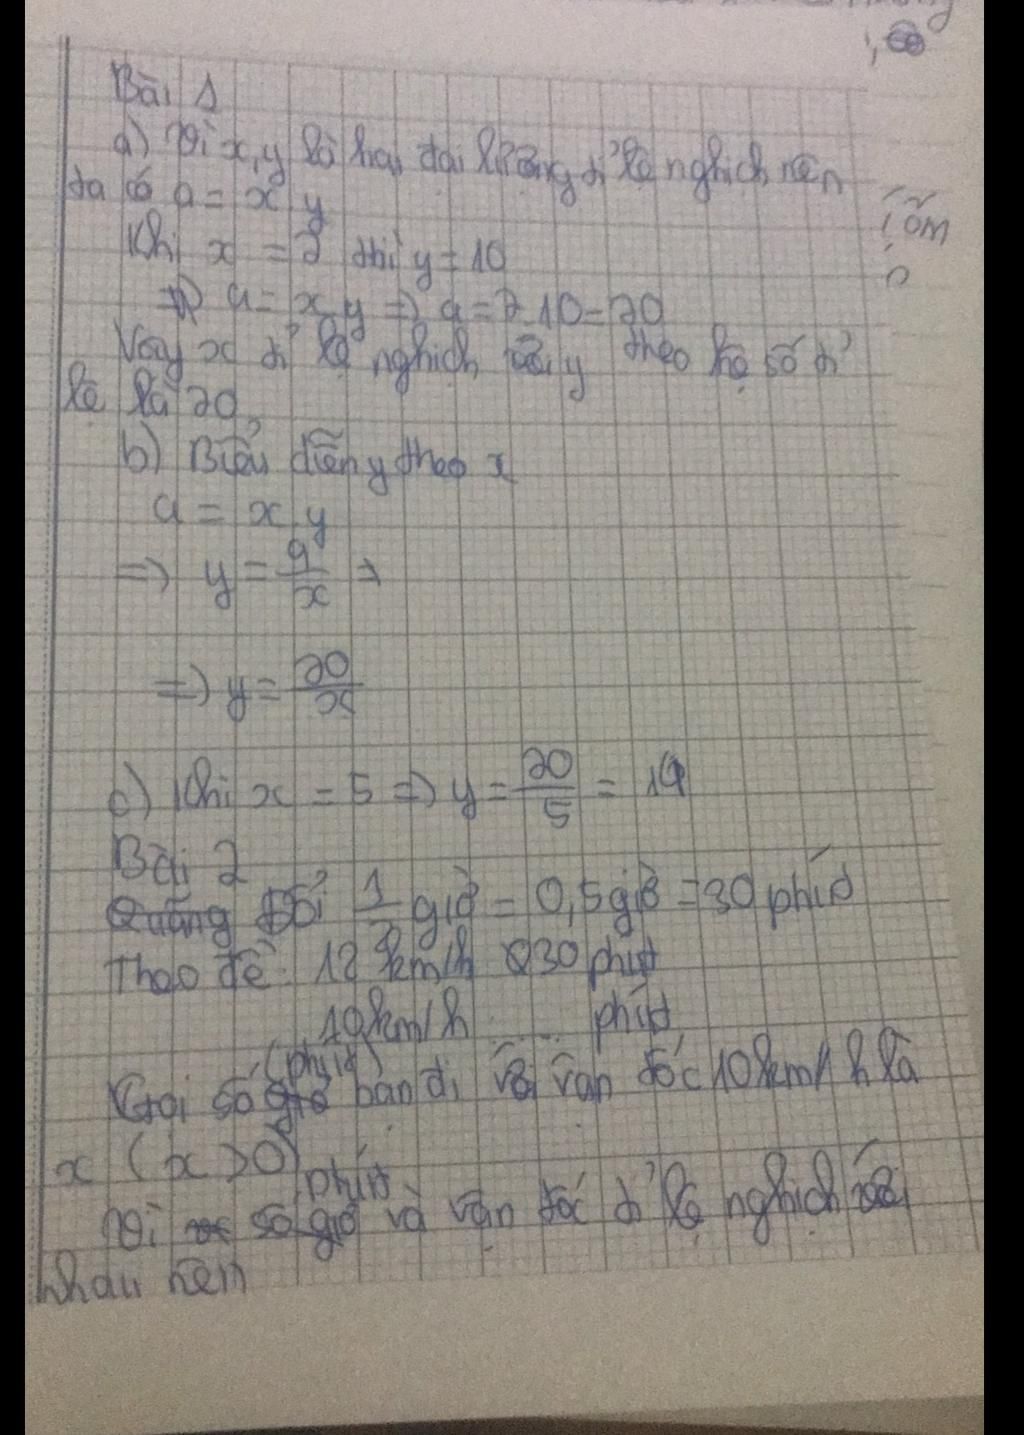 Bài 1
a) Vì x, y là hai đại lượng tỉ lệ nghịch nên
ta có a = x.y
Khi x = 2 thì y = 10
=> a = x.y => a = 2.10 = 20
Vậy x tỉ lệ nghịch với y theo hệ số tỉ
lệ là 20
b) Biểu diễn y theo x
a = x.y
=> y = a/x =>
=> y = 20/x
c) Khi x = 5 => y = 20/5 =
Bài 2
Đổi 1/2 giờ = 0,5 giờ = 30 phút
Theo đề: 12 km/h 30 phút
10 km/h ..... phút
(phút)
Gọi số giờ bạn đi với vận tốc 10 km/h là
x (x > 0)
phút
Vì số giờ và vận tốc tỉ lệ nghịch với
nhau nên